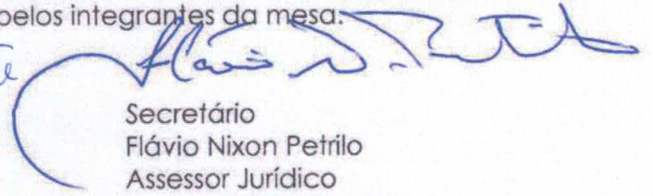 pelos integrantes da mesa.
Flávio N. Petrilo
Secretário
Flávio Nixon Petrilo
Assessor Jurídico